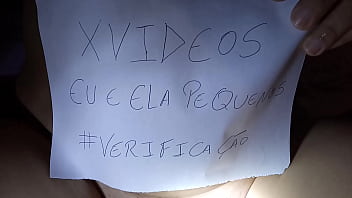 XVIDEOS
EU E ELA PEQUENOS
#VERIFICAÇÃO